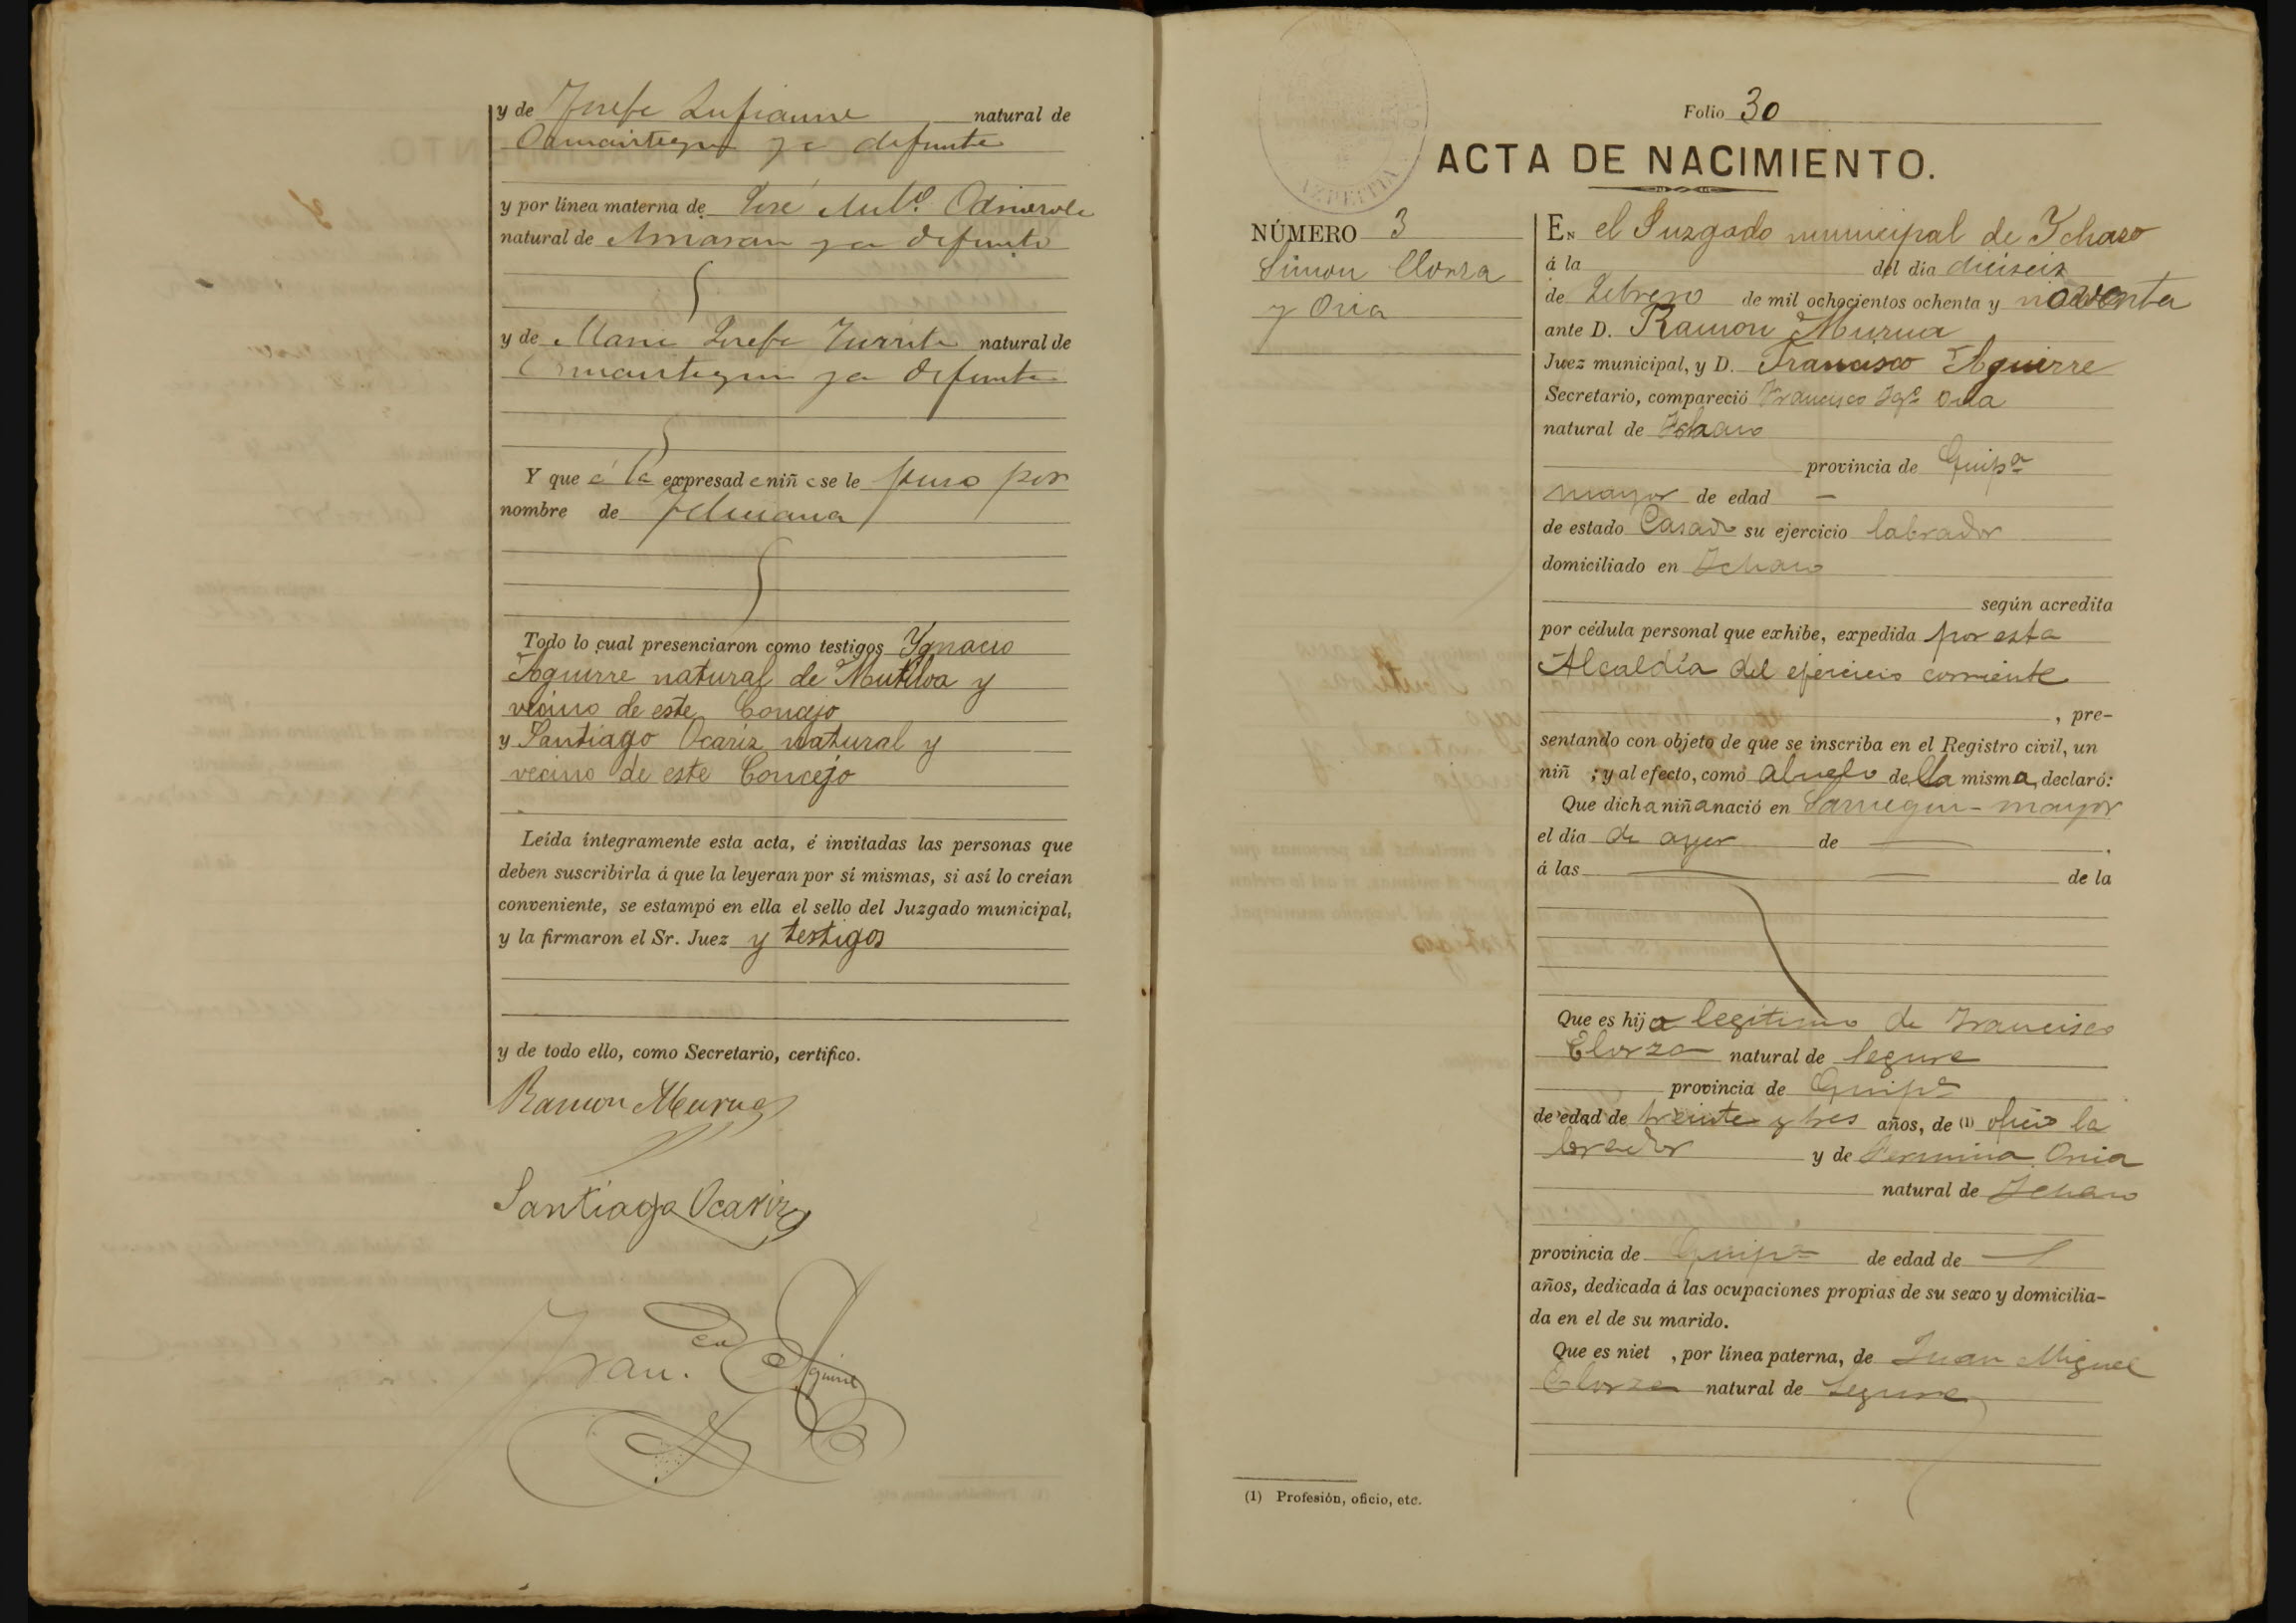 y de Josefa Lufiaurre natural de
Ormaiztegui ya difunta
y por línea materna de José Ant.º Odriozola
natural de Amasa ya difunto
y de Maria Josefa Iturrite natural de
Ormaiztegui ya difunta
Y que á la expresada niña se le puso por
nombre de Feliciana
Todo lo cual presenciaron como testigos Ygnacio
Aguirre natural de Mutiloa y
vecino de este Concejo
y Santiago Ocariz natural y
vecino de este Concejo
Leída íntegramente esta acta, é invitadas las personas que
deben suscribirla á que la leyeran por sí mismas, si así lo creían
conveniente, se estampó en ella el sello del Juzgado municipal,
y la firmaron el Sr. Juez y testigos
y de todo ello, como Secretario, certifico.
Ramon Murua
Santiago Ocariz
Fran.co Aguirre
Folio 30
ACTA DE NACIMIENTO.
AZPEITIA
NÚMERO 3
Simon Elorza
y Oria
En el Juzgado municipal de Ichaso
á la del día dieiseis
de Febrero de mil ochocientos ochenta y noventa
ante D. Ramon Murua
Juez municipal, y D. Francisco Aguirre
Secretario, compareció Francisco Igº Oria
natural de Ichaso
provincia de Guipª
mayor de edad —
de estado Casado su ejercicio labrador
domiciliado en Ichaso
según acredita
por cédula personal que exhibe, expedida por esta
Alcaldía del ejercicio corriente
, pre-
sentando con objeto de que se inscriba en el Registro civil, un
niñ ; y al efecto, como abuelo de la misma, declaró:
Que dicha niña nació en Sarriegui-mayor
el día de ayer de —
á las — — de la
Que es hija legitimo de Francisco
Elorza natural de Segura
provincia de Guipª
de edad de treinta y tres años, de (1) oficio la
brador y de Fermina Oria
natural de Ichaso
provincia de Guipª de edad de —
años, dedicada á las ocupaciones propias de su sexo y domicilia-
da en el de su marido.
Que es niet , por línea paterna, de Juan Miguel
Elorza natural de Segura
(1) Profesión, oficio, etc.